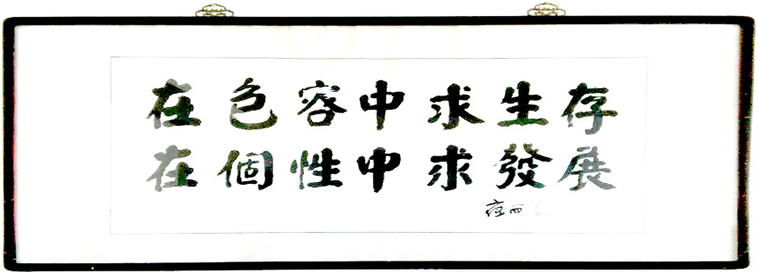 在色容中求生存
在個性中求發展